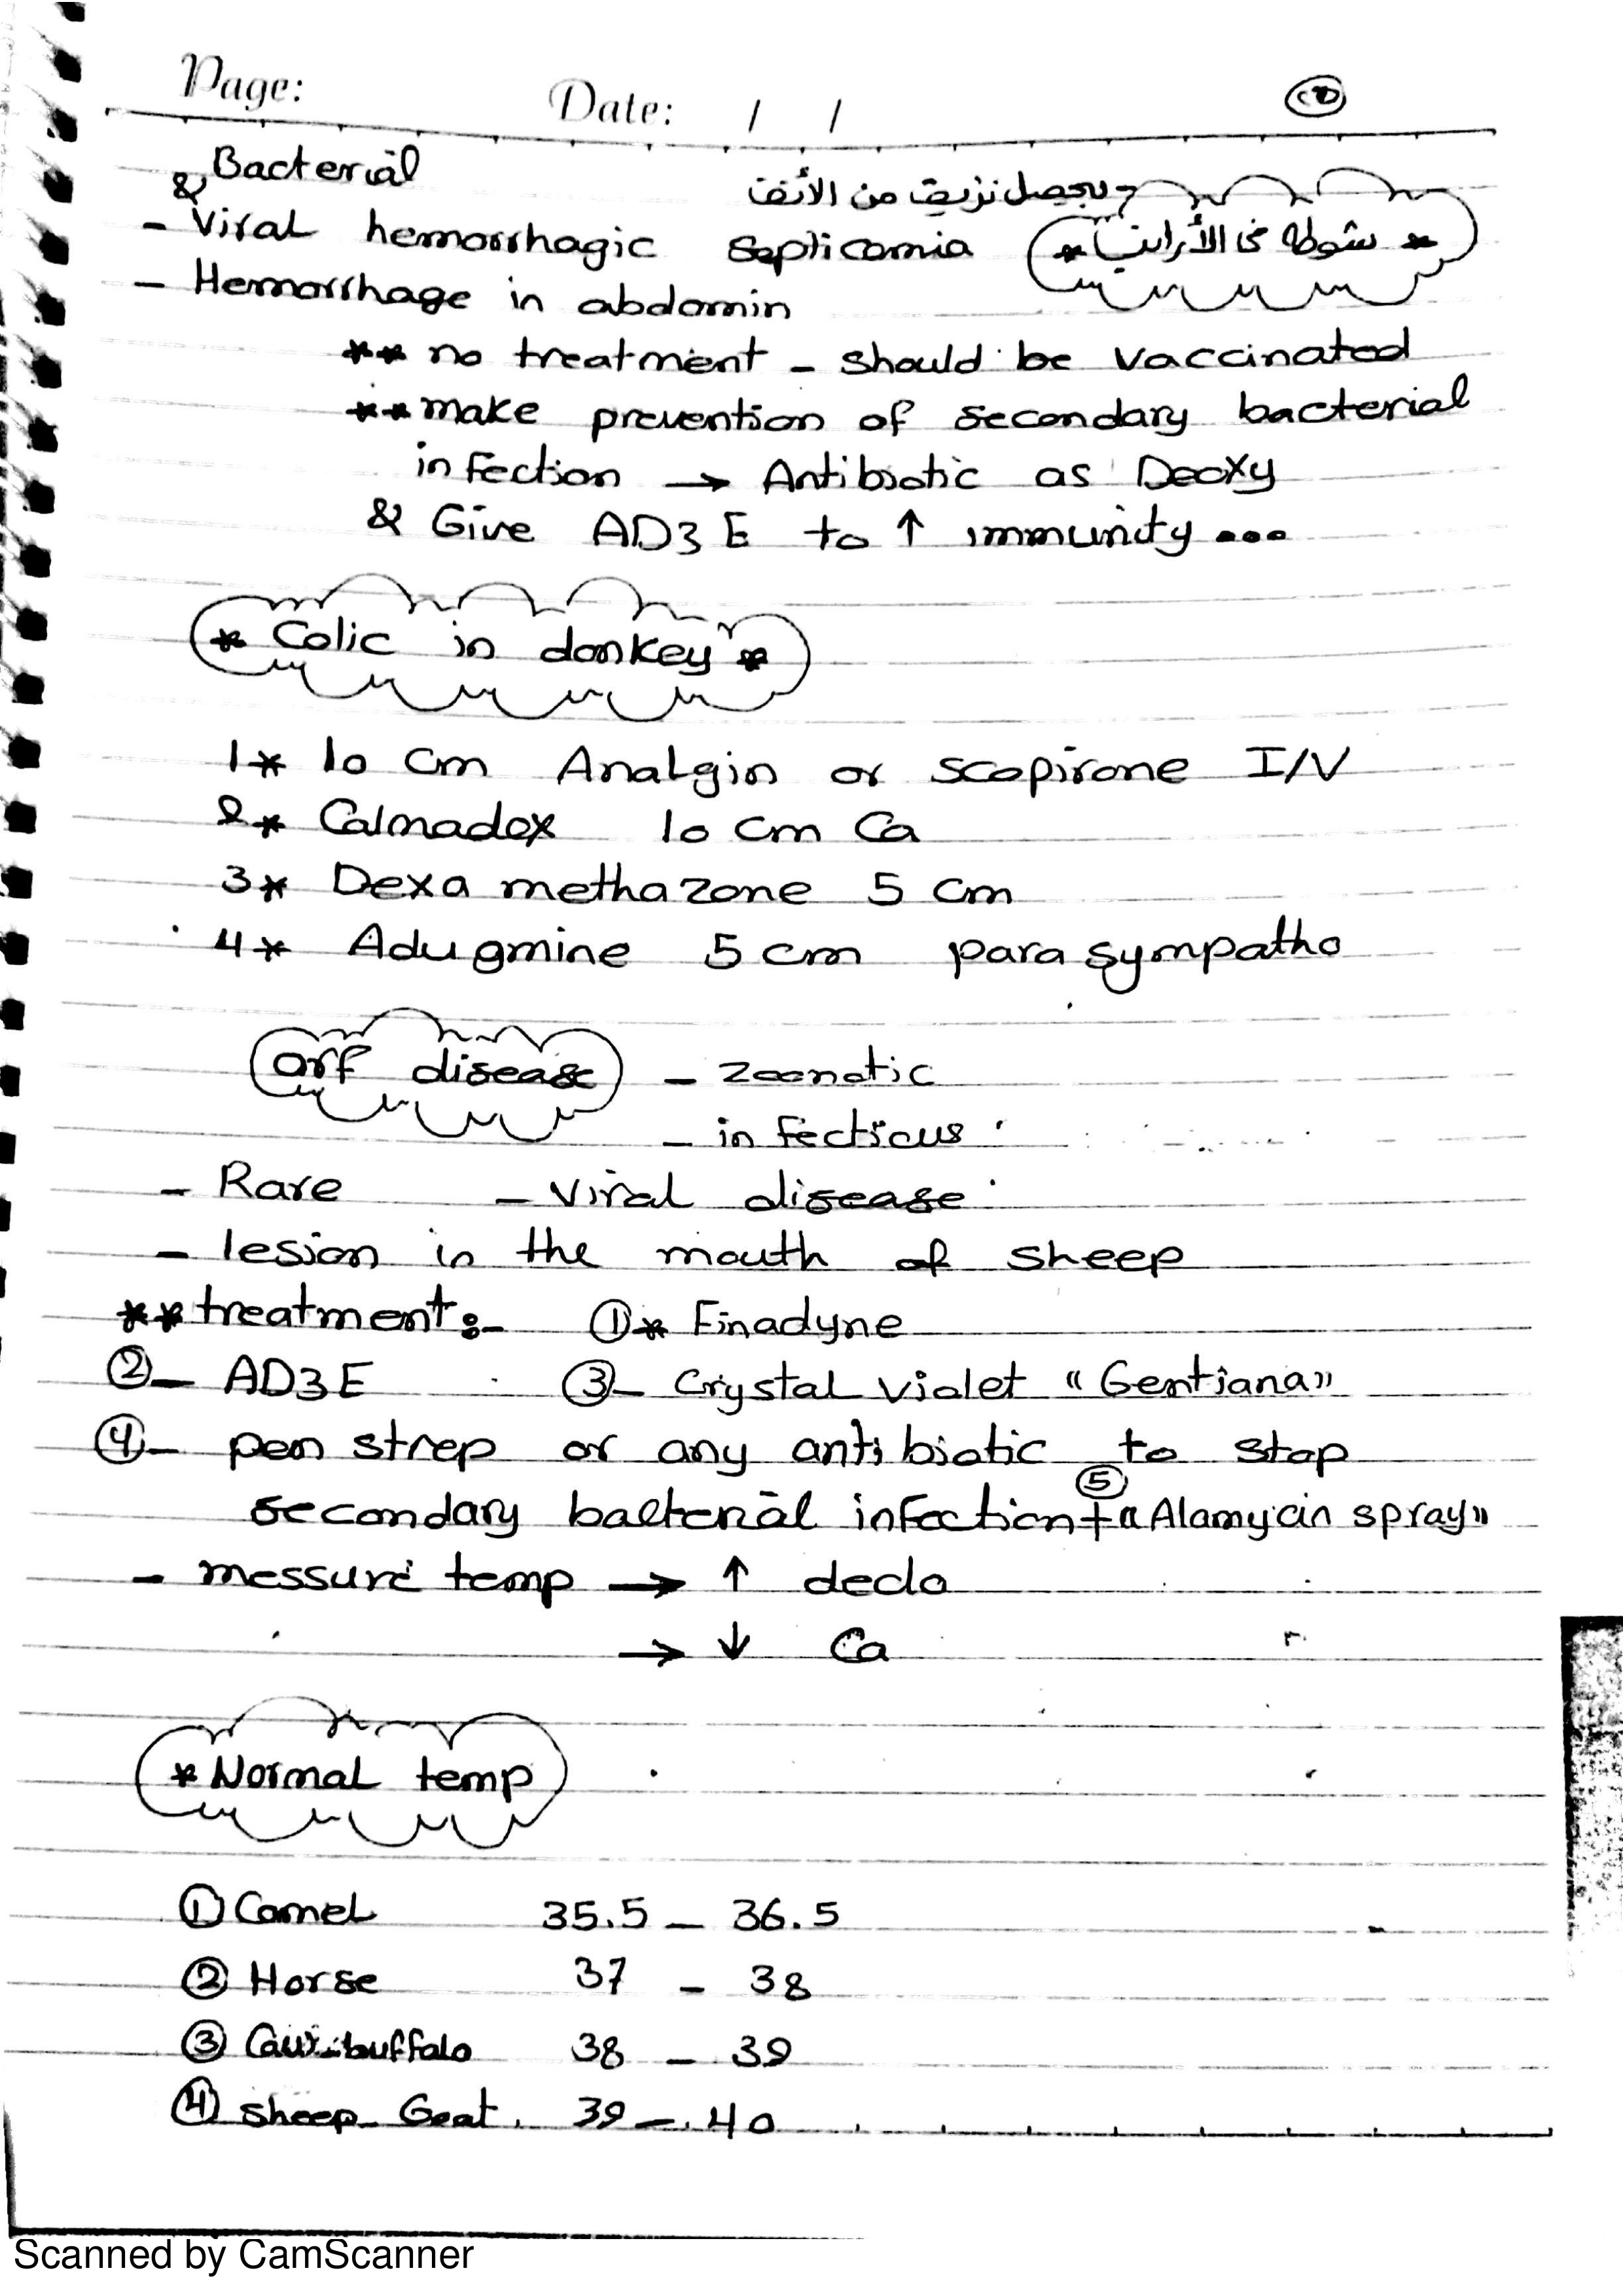 Page: Date: / /
* شوطه فى الأرانب *
يحصل نزيف من الأنف
& Bacterial
- Viral hemorrhagic septicamia
- Hemorrhage in abdomin
** no treatment - should be vaccinated
** make prevention of secondary bacterial
infection → Antibiotic as Deoxy
& Give AD3E to ↑ immunity ...
* Colic in donkey *
1* 10 cm Analgin or scopirone I/V
2* Calmadex 10 cm Ca
3* Dexa methazone 5 cm
4* Adugmine 5 cm para sympatho
orf disease - zoonotic
- infectious
- Rare - Viral disease
- lesion in the mouth of sheep
** treatment:- ①* Finadyne
②- AD3E ③- Crystal violet "Gentiana"
④- pen strep or any antibiotic to stop
secondary bacterial infection ⑤ + "Alamycin spray"
- messure temp → ↑ declo
→ ↓ Ca
* Normal temp
① Camel 35.5 - 36.5
② Horse 37 - 38
③ Cow-buffalo 38 - 39
④ sheep-Goat 39 - 40
Scanned by CamScanner